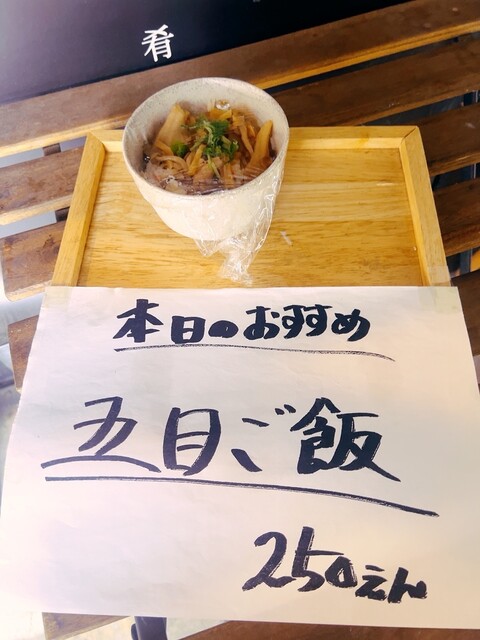 肴
本日のおすすめ
五目ご飯
250えん